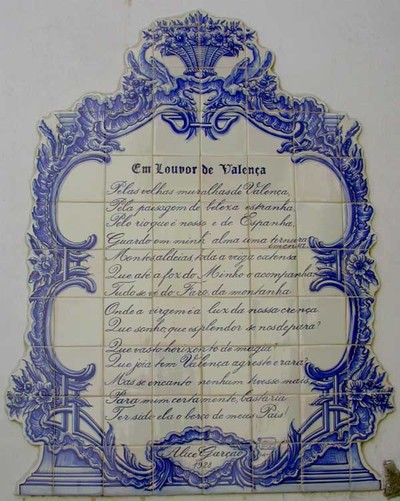 Em Louvor de Valença
Pelas velhas muralhas de Valença,
Pela paisagem de beleza estranha,
Pelo rio que é nosso e de Espanha,
Guardo em minh'alma uma ternura
imensa.
Montes, aldeias, toda a veiga extensa
Que até a foz do Minho o acompanha
Tudo se vê do Faro, da montanha
Onde a virgem é a luz da nossa crença
Que sonho, que esplendor se nos depara!
Que vasto horizonte de magia!
Que joia tem Valença agreste e rara!
Mas se encanto nenhum tivesse mais,
Para mim certamente, bastaria
Ter sido ela o berço de meus Pais!
Alice Garção
1928